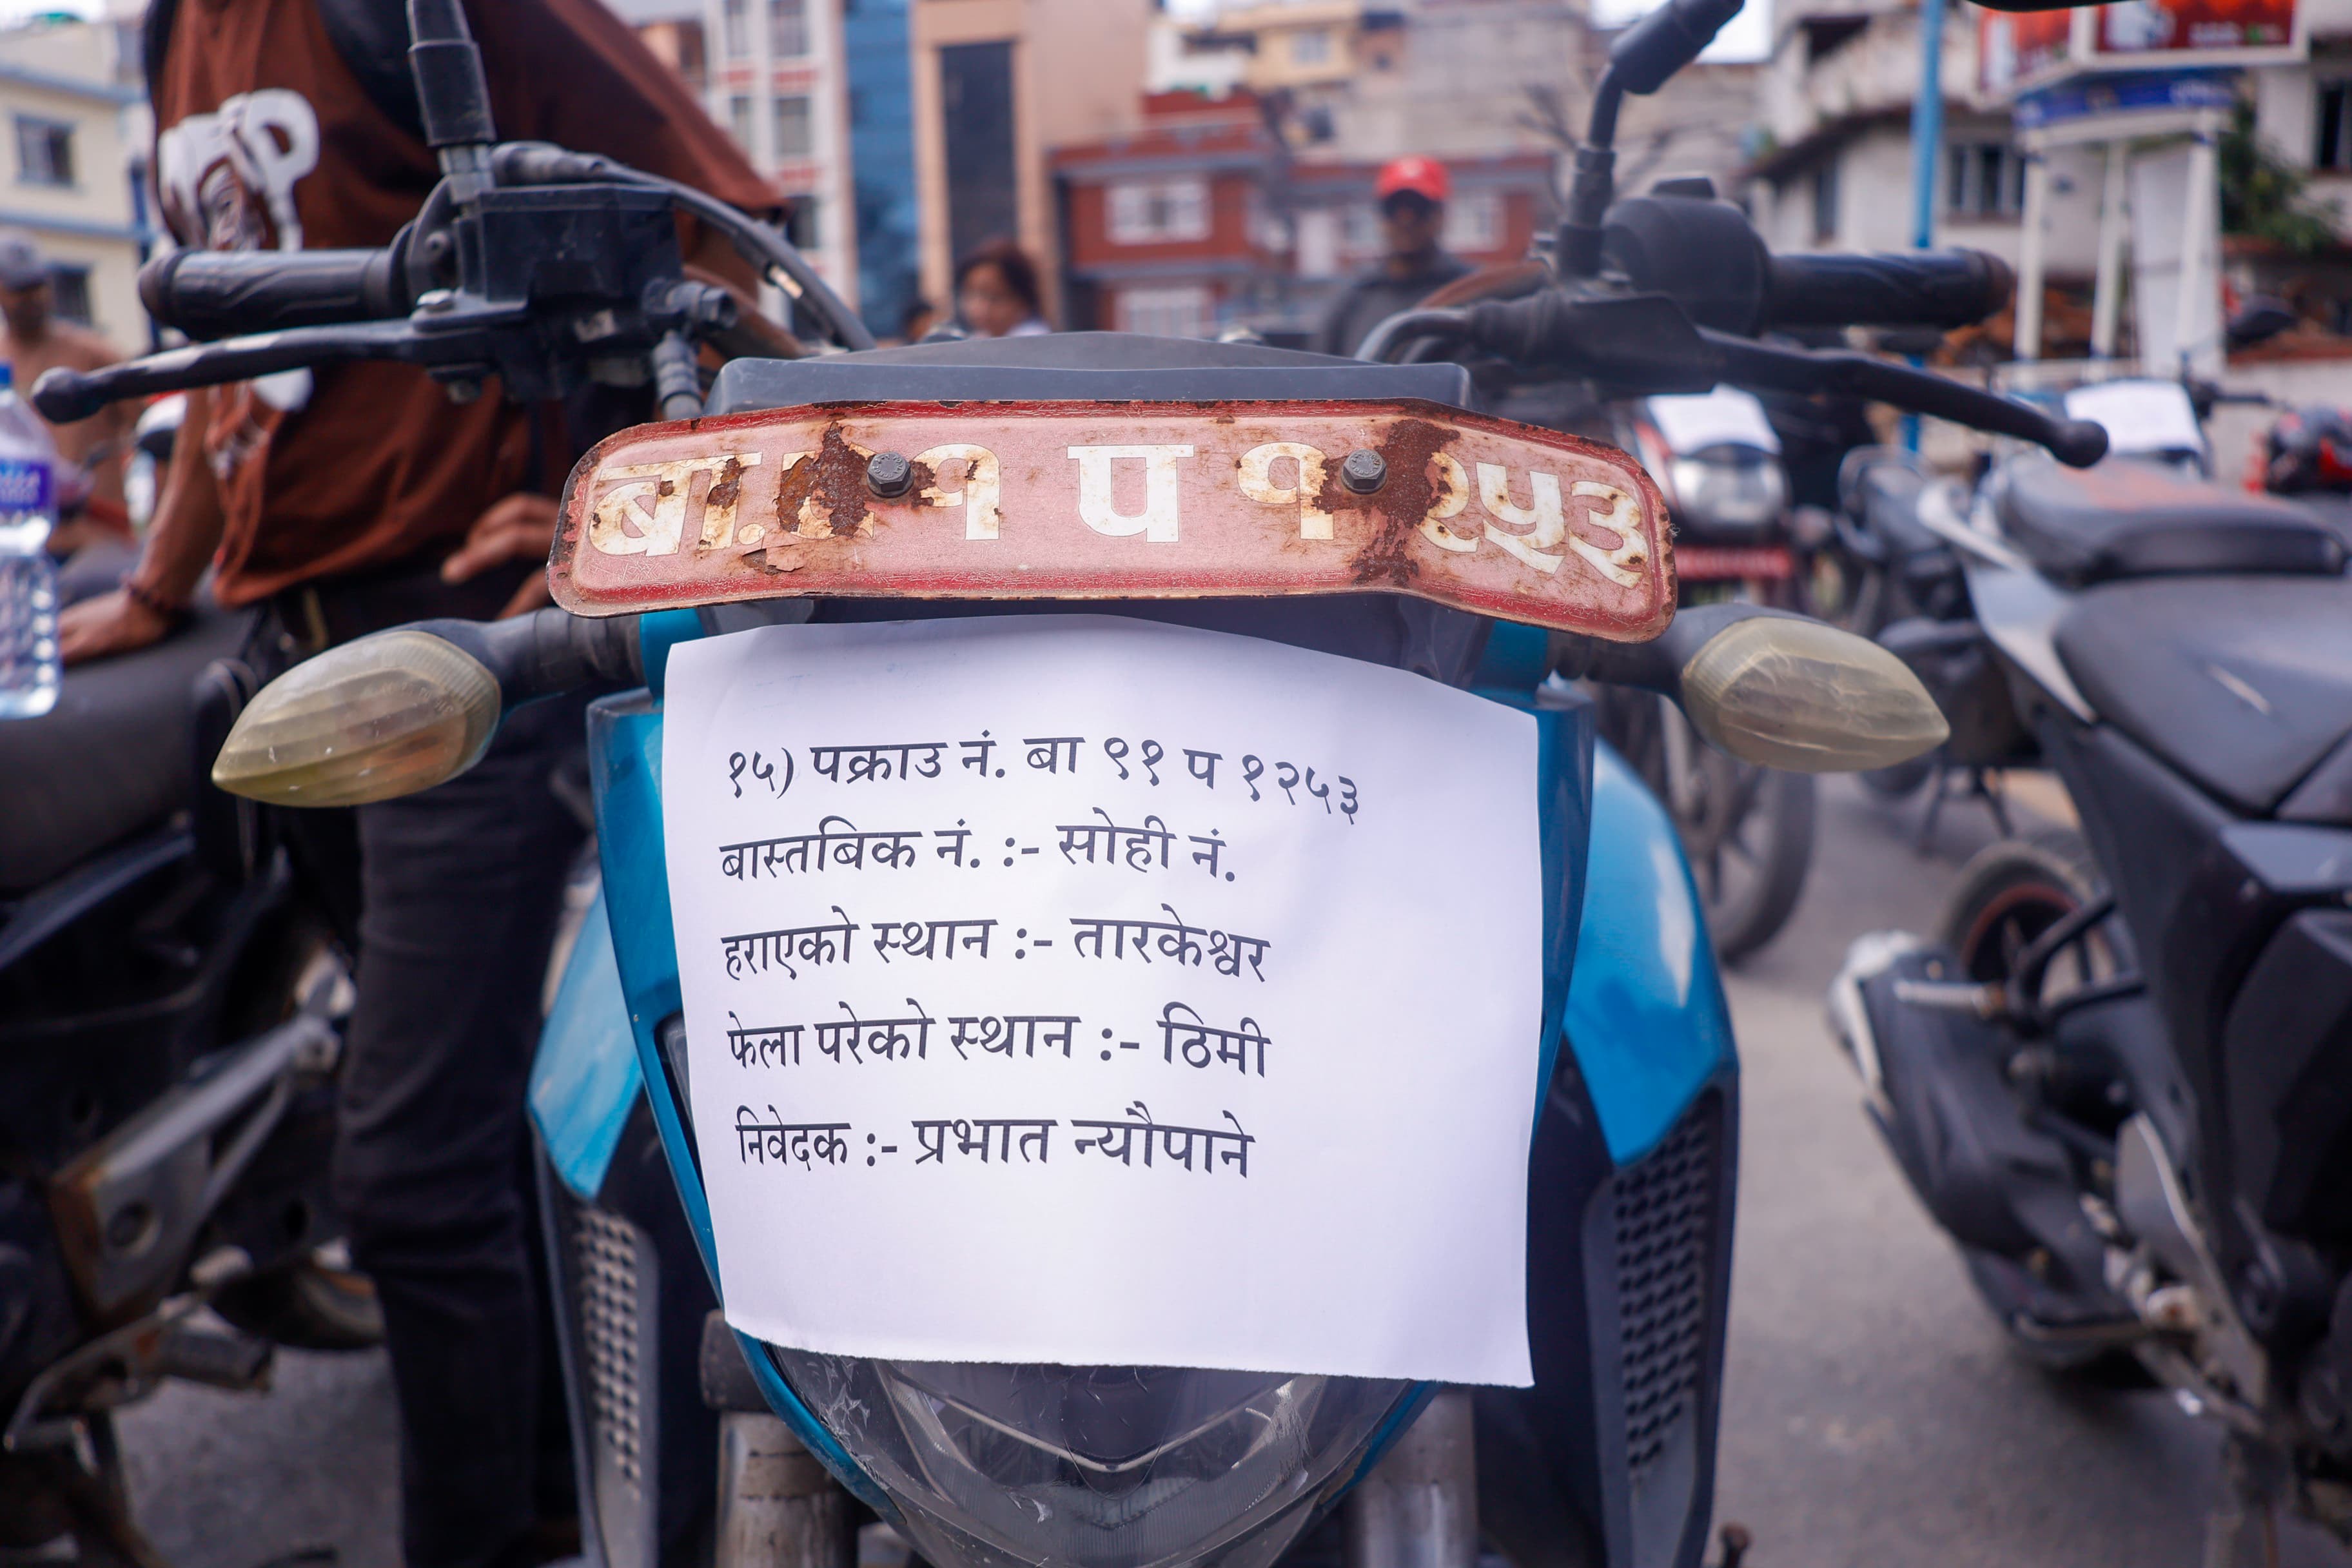 बा. १ प १२५३
१५) पक्राउ नं. बा ९१ प १२५३
बास्तबिक नं. :- सोही नं.
हराएको स्थान :- तारकेश्वर
फेला परेको स्थान :- ठिमी
निवेदक :- प्रभात न्यौपाने